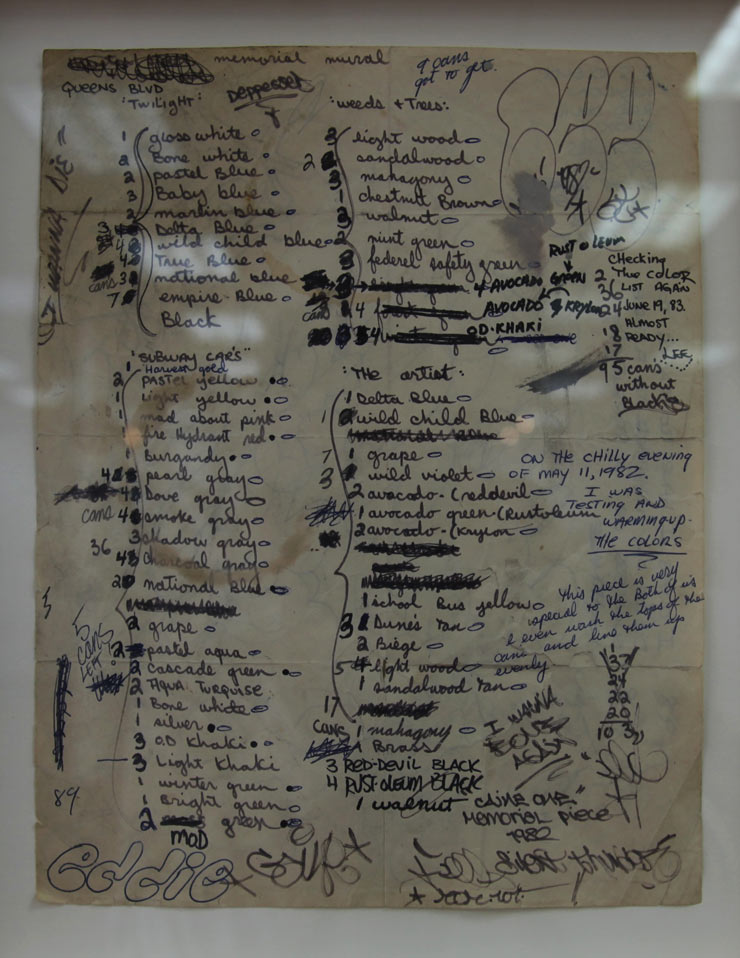 memorial mural
9 cans
got to get.
QUEENS BLVD
"TWILIGHT":
Deppesset
1 gloss white
2 Bone white
2 pastel Blue
3 Baby blue
2 martin blue
Delta Blue
4 wild child blue
4 True Blue
cans 3 national blue
7 empire Blue
Black
I WANNA DIE
"weeds + Trees:
3 light wood
2 sandalwood
3 mahagony
1 chestnut Brown
3 walnut
2 mint green
3 federal safety green
4 AVOCADO GREEN
cans 1 4 AVOCADO 3 KRYLON
3 4 O.D. KHAKI
RUST OLEUM
CHECKING
THE COLOR
LIST AGAIN
JUNE 19, 83.
ALMOST
READY...
LEE
2
36
24
18
17
95 cans
without
Black
"SUBWAY CARS"
Harvest gold
2 PASTEL yellow
1 light yellow
1 mad about pink
1 fire Hydrant red
Burgandy
4 pearl gray
4 Dove gray
cans 4 smoke gray
36 3 shadow gray
4 charcoal gray
2 national Blue
2 grape
2 pastel aqua
2 Cascade green
2 AQUA TURQUISE
1 Bone white
1 silver
3 O.D Khaki
3 Light Khaki
1 winter green
1 Bright green
2 green
MOD
5
cans
LEFT
89
"The artist:
1 Delta Blue
2 wild child Blue
7 1 grape
3 wild violet
2 avacado-(reddevil
1 avocado green-(Rustoleum
2 avocado-(Krylon
1 school Bus yellow
3 Dune's Tan
2 Biege
5 4 light wood
1 sandalwood Tan
17
cans 1 mahagony
1 Brass
3 RED-DEVIL BLACK
4 RUST-OLEUM BLACK
1 walnut
ON THE CHILLY EVENING
OF MAY 11, 1982.
I WAS
TESTING AND
WARMING-UP.
THE COLORS
this piece is very
special to the Both of us
I even wash the tops of the
cans and line them up
evenly
37
24
22
20
103
I WANNA
BOMB
AGAIN
"CAINE ONE"
MEMORIAL PIECE
1982
eddie